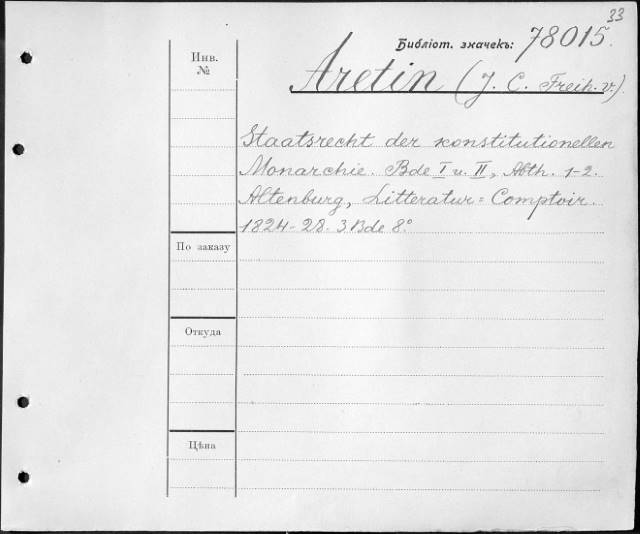 33
Библіот. значекъ: 78015.
Инв.
№
Aretin (J. C. Freih. v.)
Staatsrecht der konstitutionellen
Monarchie. Bde I u. II, Abth. 1-2.
Altenburg, Litteratur=Comptoir.
1824-28. 3 Bde 8°
По заказу
Откуда
Цѣна